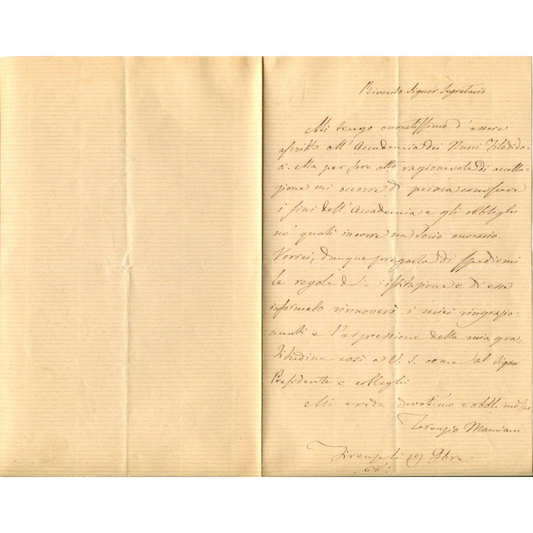 Riverito Signor Segretario
Mi tengo onoratissimo d'essere
ascritto all'Accademia dei Nuovi Filedida-
ci. Ma per fare atto ragionevole di accetta-
zione mi occorre di prima conoscere
i fini dell'Accademia e gli obblighi
ne' quali incorre un Socio onorario.
Vorrei, dunque pregarla di spedirmi
le regole della istituzione e di esse
informato rinnoverò i miei ringrazia-
menti e l'espressione della mia gra-
titudine così a V. S. come al Signor
Presidente e colleghi
Mi creda devotmo e obblmo suo
Terenzio Mamiani
Firenze li 9bre
66